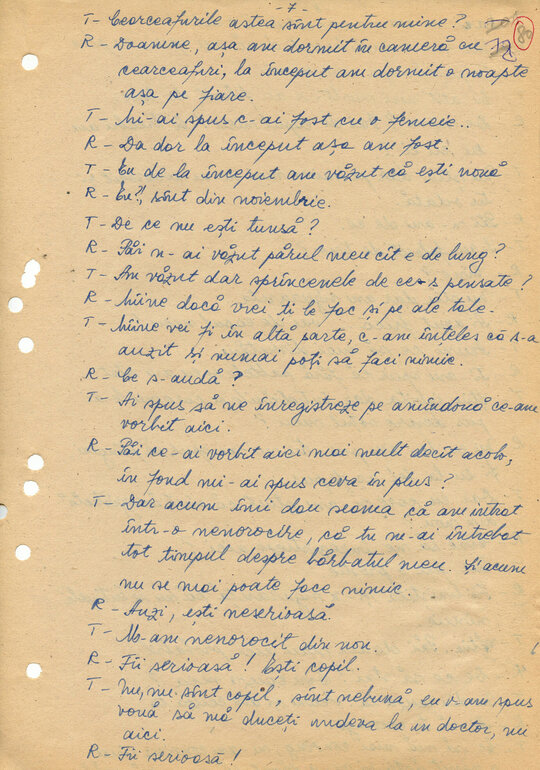 - 7 -
T - Cearceafurile astea sînt pentru mine?
R - Doamne, așa am dormit în cameră cu
cearceafuri, la început am dormit o noapte
așa pe fiare.
T - Mi-ai spus c-ai fost cu o femeie..
R - Da dar la început așa am fost.
T - Eu de la început am văzut că ești nouă
R - Eu?, sînt din noiembrie.
T - De ce nu ești tunsă?
R - Păi n-ai văzut părul meu cît e de lung?
T - Am văzut dar sprîncenele de ce-s pensate?
R - Mîine dacă vrei ți le fac si pe ale tale.
T - Mîine vei fi în altă parte, c-am înțeles că s-a
auzit și numai poți să faci nimic.
R - Ce s-audă?
T - Ai spus să ne înregistreze pe amîndouă ce-am
vorbit aici.
R - Păi ce-ai vorbit aici mai mult decît acolo,
în fond mi-ai spus ceva în plus?
T - Dar acum îmi dau seama că am intrat
într-o nenorocire, că tu m-ai întrebat
tot timpul despre bărbatul meu. Și acum
nu se mai poate face nimic.
R - Auzi, ești neserioasă.
T - M-am nenorocit din nou.
R - Fii serioasă! Ești copil.
T - Nu, nu sînt copil, sînt nebună, eu v-am spus
vouă să mă duceți undeva la un doctor, nu
aici.
R - Fii serioasă!